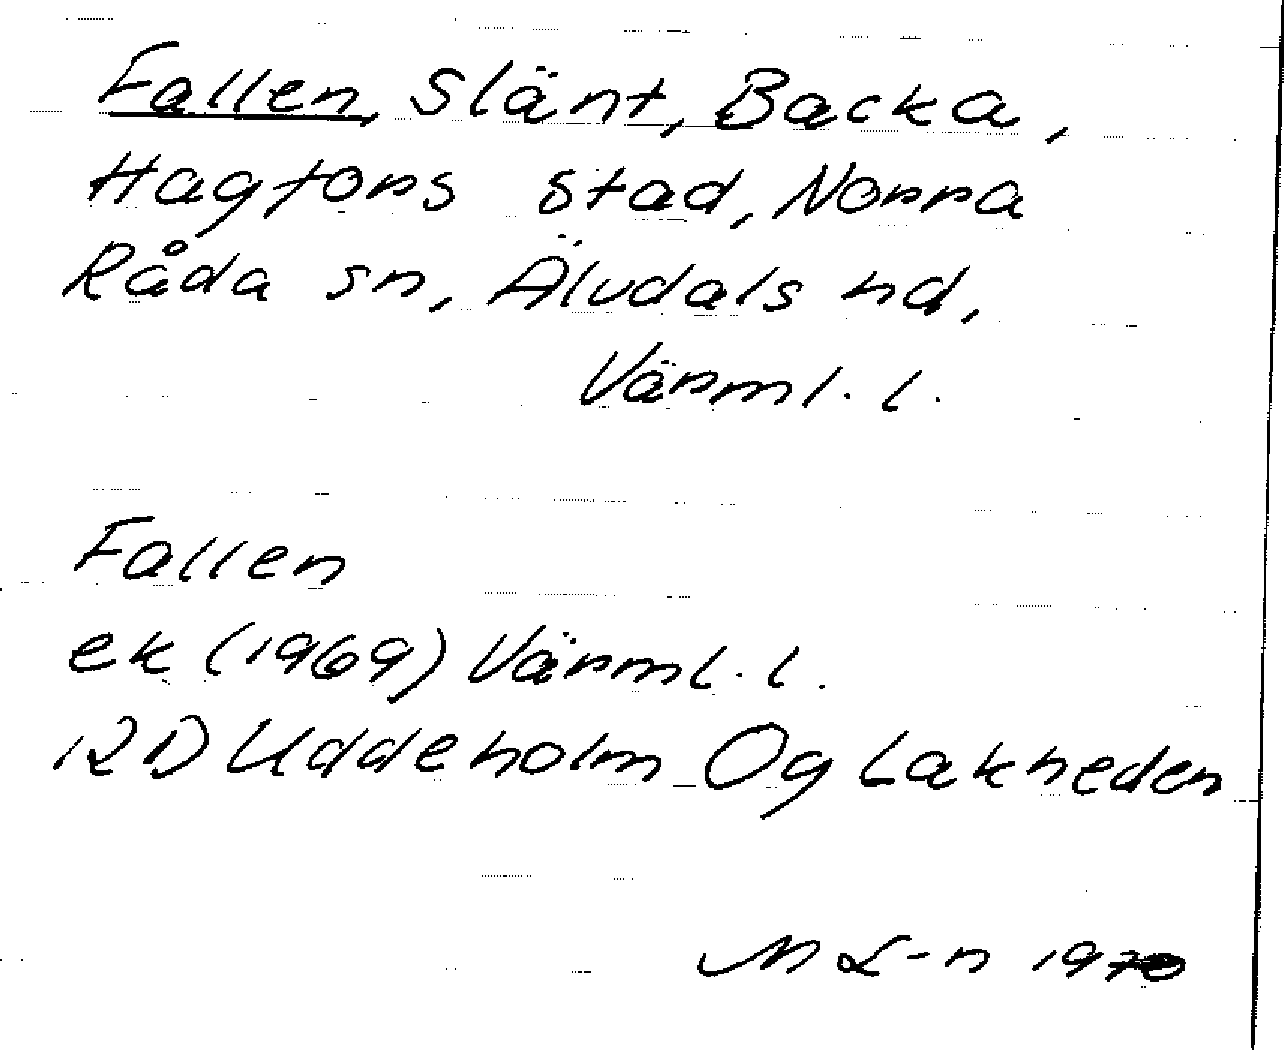 Fallen, Slänt, Backa,
Hagfors stad, Norra
Råda sn, Älvdals hd,
Värml. l.
Fallen
ek (1969) Värml. l.
12D Uddeholm Og Lakheden
M L-n 1970